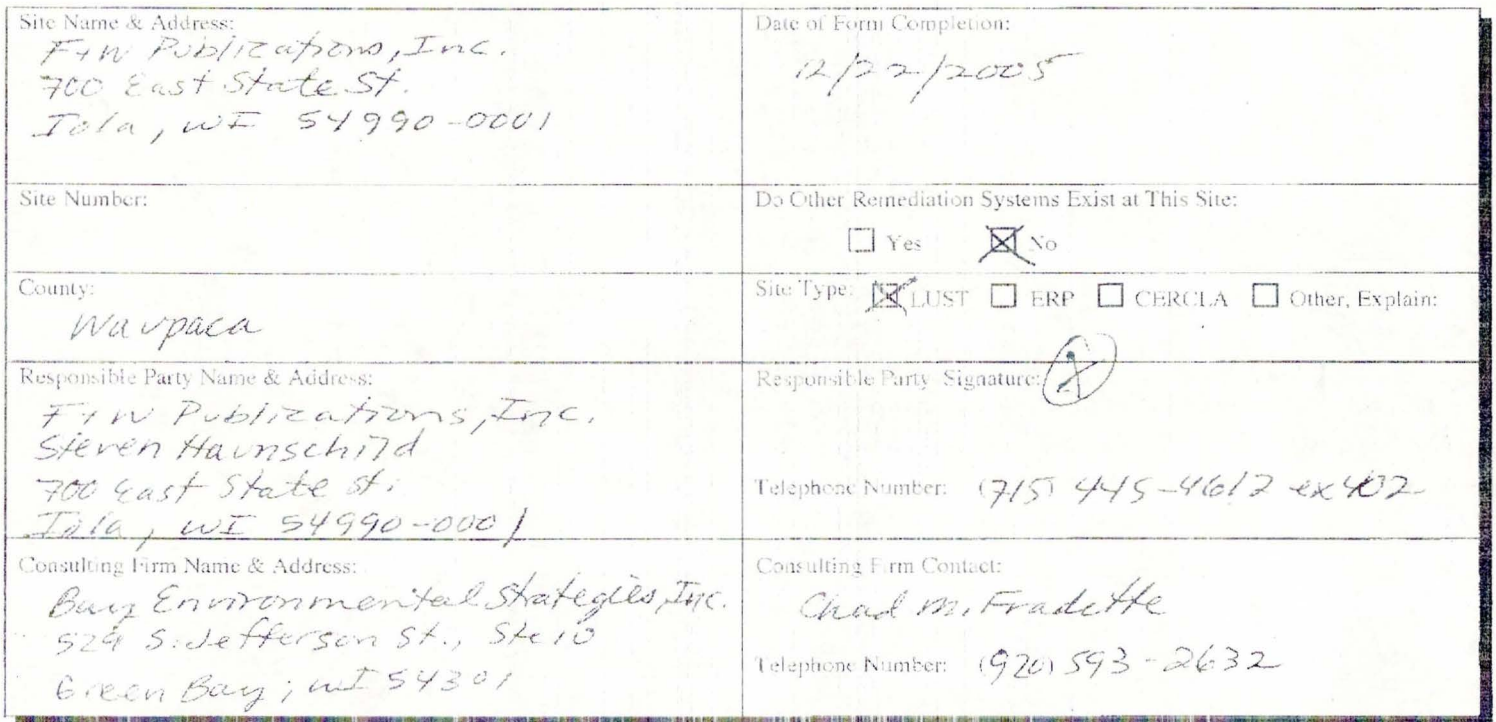 Site Name & Address:
F+W Publications, Inc.
700 East State St.
Iola, WI 54990-0001
Date of Form Completion:
12/22/2005
Site Number:
Do Other Remediation Systems Exist at This Site:
Yes No
County:
Waupaca
Site Type: LUST ERP CERCLA Other, Explain:
Responsible Party Name & Address:
F+W Publications, Inc.
Steven Haunschild
700 East State St.
Iola, WI 54990-0001
Responsible Party Signature:
Telephone Number: (715) 445-4612 ex402
Consulting Firm Name & Address:
Bay Environmental Strategies, Inc.
529 S. Jefferson St., Ste 10
Green Bay, WI 54301
Consulting Firm Contact:
Chad M. Fradette
Telephone Number: (920) 593-2632